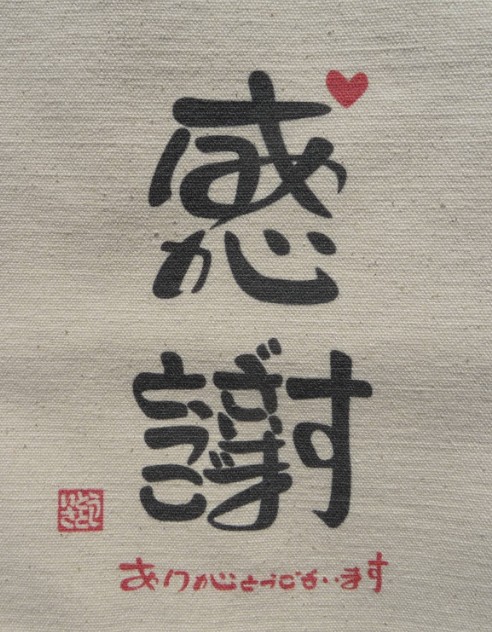 感
謝
ありがとうございます